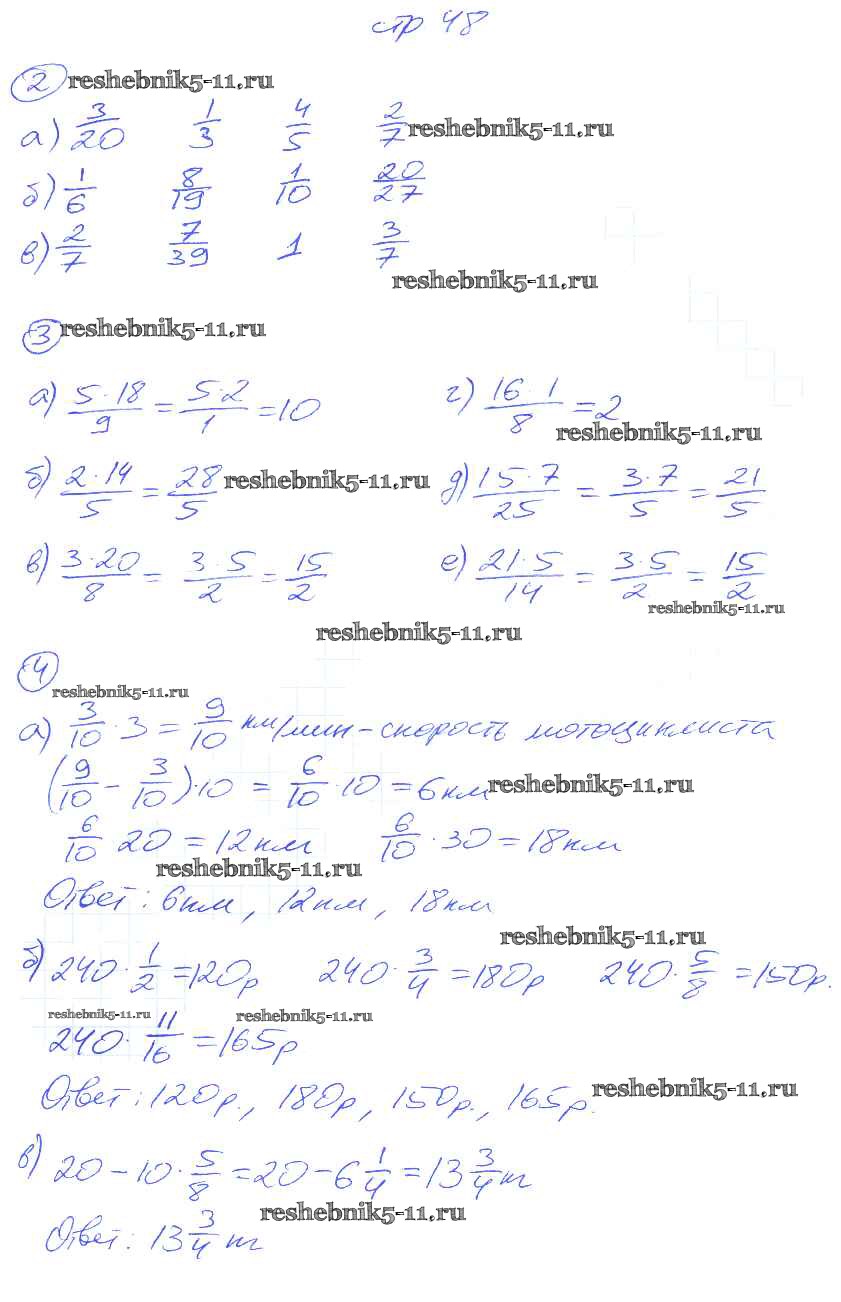 стр 48
2 reshebnik5-11.ru
а) 3/20 1/3 4/5 2/7 reshebnik5-11.ru
б) 1/6 8/19 1/10 20/27
в) 2/7 7/39 1 3/7
reshebnik5-11.ru
3 reshebnik5-11.ru
а) 5·18/9 = 5·2/1 = 10 г) 16·1/8 = 2
reshebnik5-11.ru
б) 2·14/5 = 28/5 reshebnik5-11.ru д) 15·7/25 = 3·7/5 = 21/5
в) 3·20/8 = 3·5/2 = 15/2 е) 21·5/14 = 3·5/2 = 15/2
reshebnik5-11.ru
reshebnik5-11.ru
4
reshebnik5-11.ru
а) 3/10 · 3 = 9/10 км/мин - скорость мотоциклиста
(9/10 - 3/10)·10 = 6/10 · 10 = 6км reshebnik5-11.ru
6/10 20 = 12км 6/10 · 30 = 18км
reshebnik5-11.ru
Ответ: 6км, 12км, 18км
reshebnik5-11.ru
б) 240 · 1/2 = 120р 240 · 3/4 = 180р 240 · 5/8 = 150р.
reshebnik5-11.ru reshebnik5-11.ru
240 · 11/16 = 165р
Ответ: 120р., 180р, 150р., 165р. reshebnik5-11.ru
в) 20 - 10 · 5/8 = 20 - 6 1/4 = 13 3/4 кг
reshebnik5-11.ru
Ответ: 13 3/4 кг